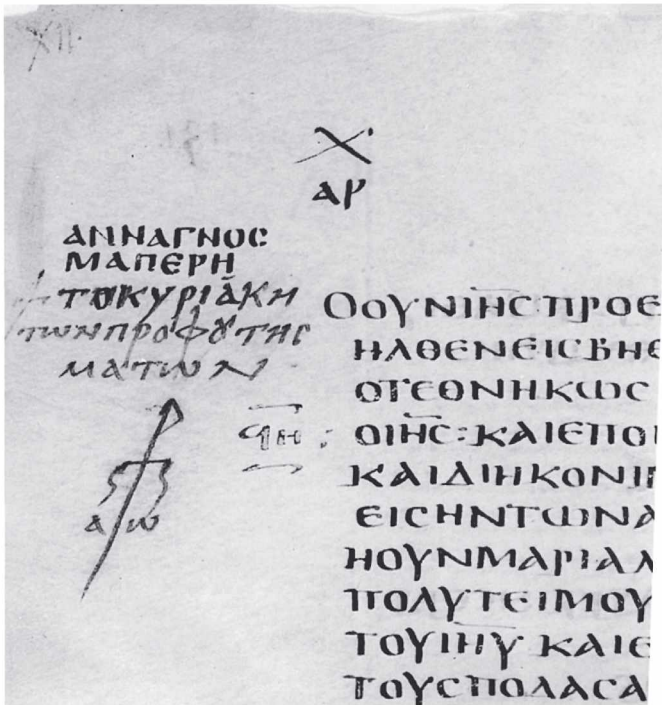 XII.
Χ
ΑΡ
ΑΝΝΑΓΝΟϹ
ΜΑΠΕΡΗ
ΤΟΚΥΡΙΑΚΗ
ΤΩΝΠΡΟΦΟΤΗϹ
ΜΑΤΩΝ
α ω
ϟη :
ΟΟΥΝΙΗϹΠΡΟΕ
ΗΛΘΕΝΕΙϹΒΗΘ
ΟΤΕΘΝΗΚΩϹ
ΟΙΗϹ:ΚΑΙΕΠΟΙ
ΚΑΙΔΙΗΚΟΝΙ
ΕΙϹΗΝΤΩΝΑ
ΗΟΥΝΜΑΡΙΑΛ
ΠΟΛΥΤΕΙΜΟΥ
ΤΟΥΙΗΥ ΚΑΙΕ
ΤΟΥϹΠΟΔΑϹΑ